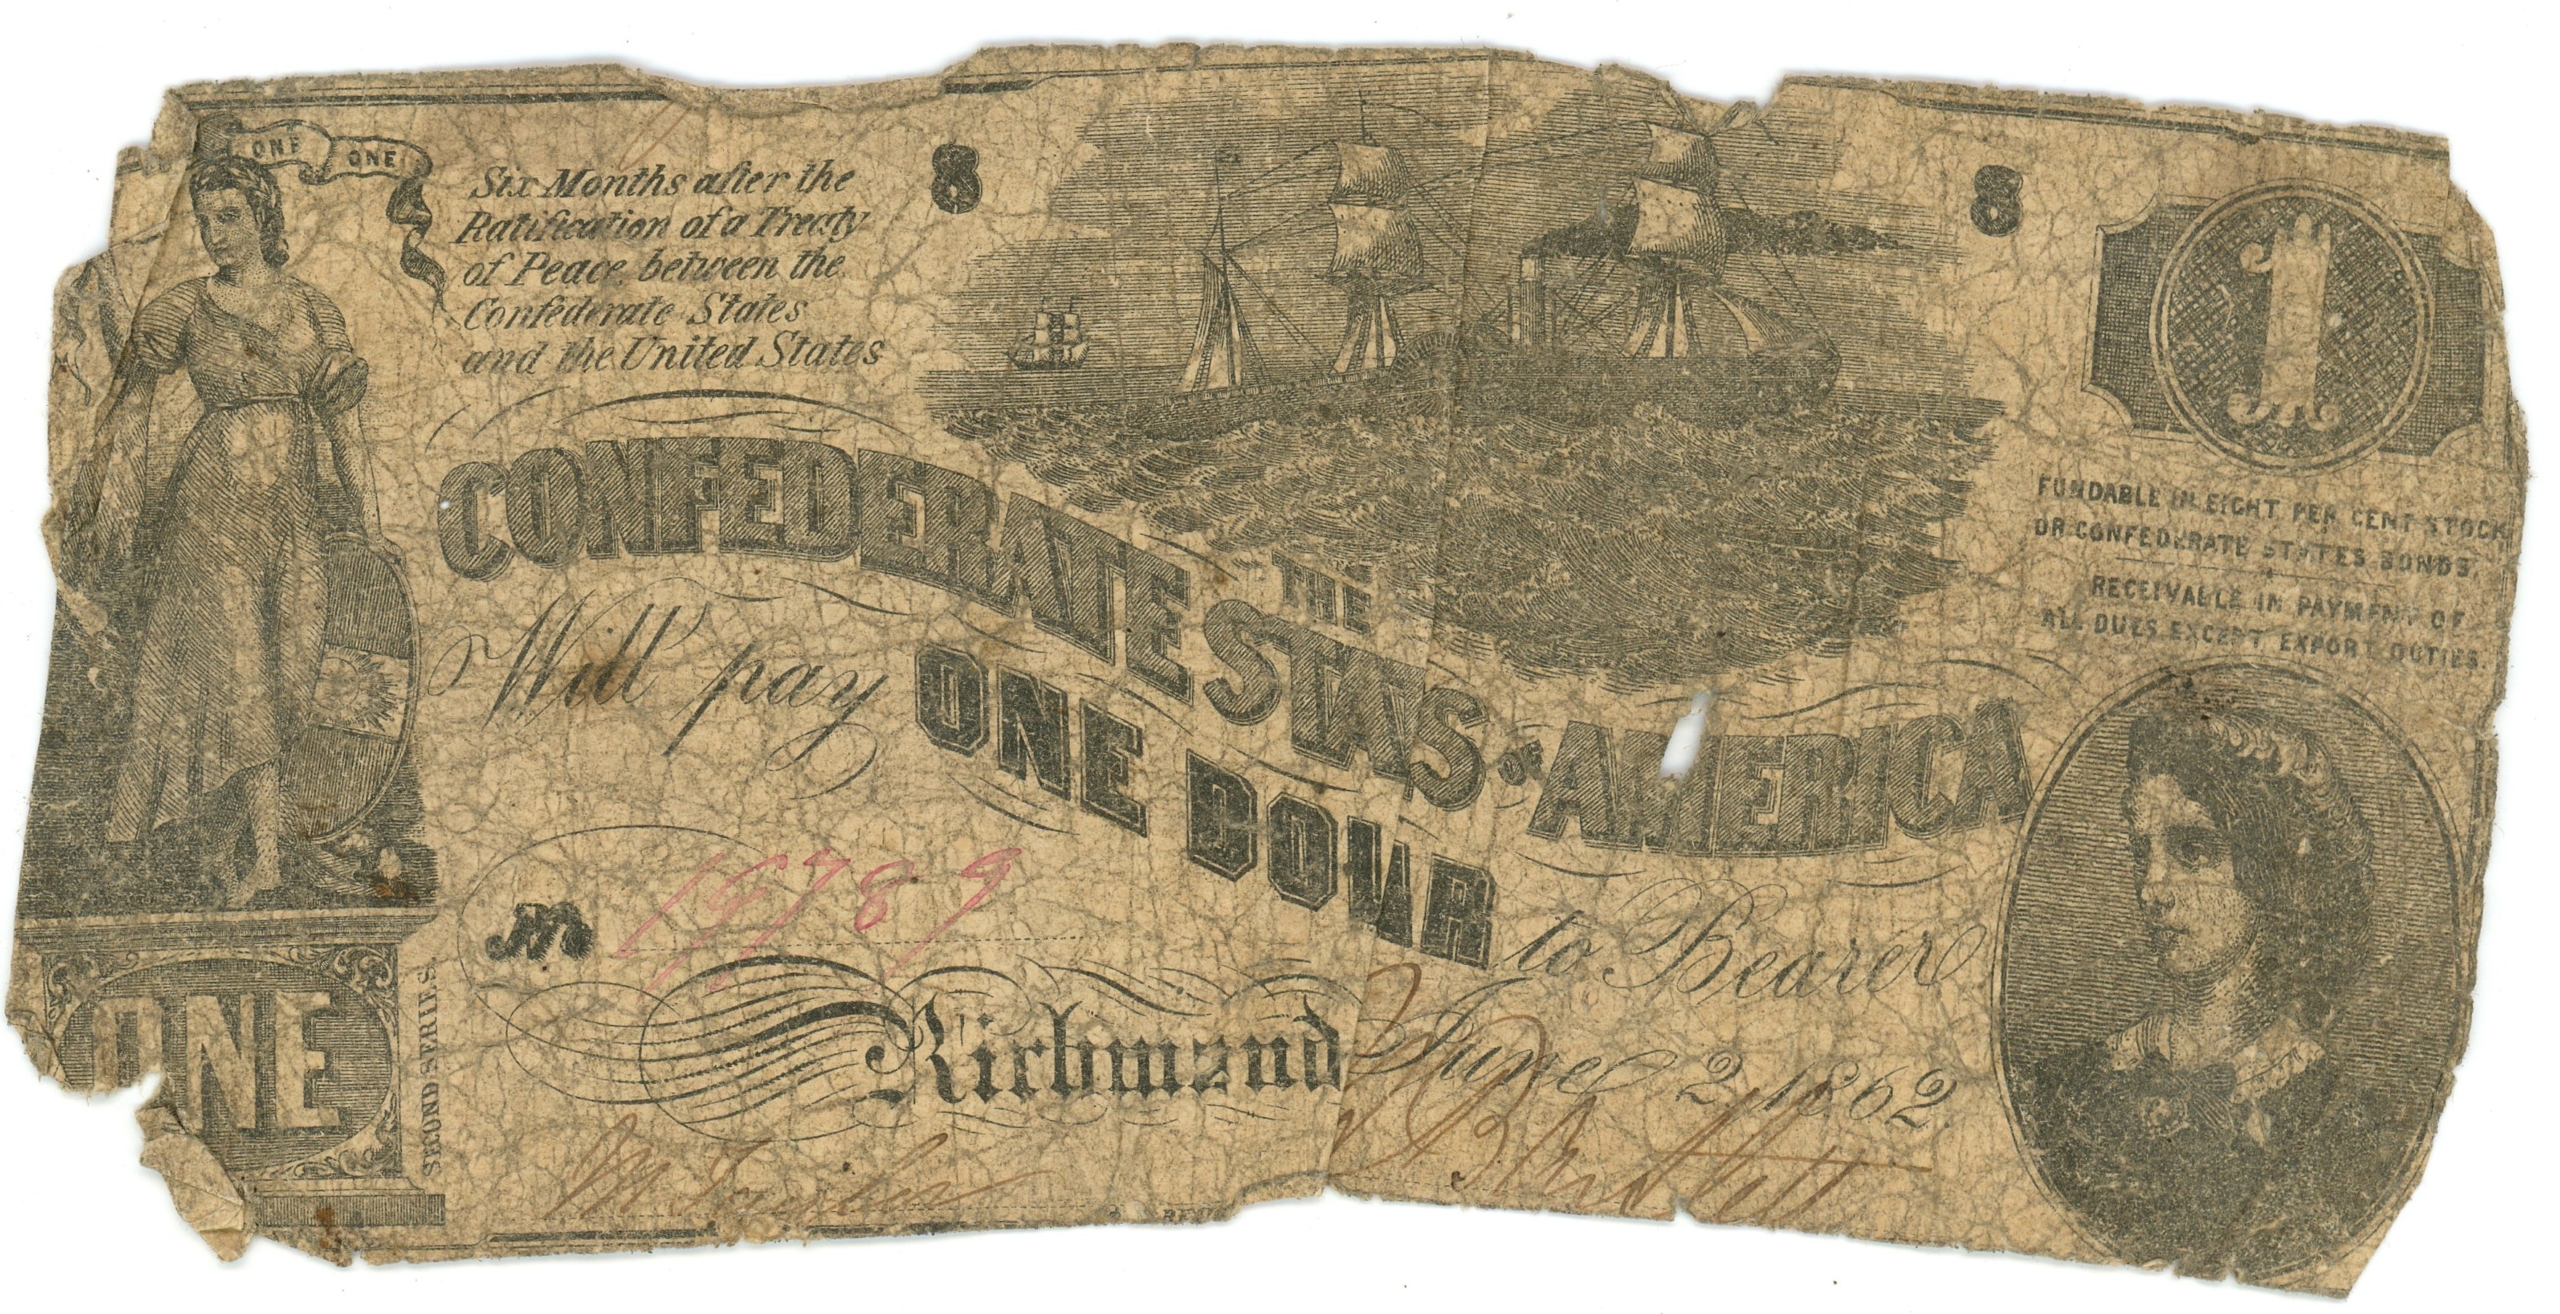 ONE ONE
Six Months after the
Ratification of a Treaty
of Peace between the
Confederate States
and the United States
8
8
1
FUNDABLE IN EIGHT PER CENT STOCK
OR CONFEDERATE STATES BONDS.
RECEIVABLE IN PAYMENT OF
ALL DUES EXCEPT EXPORT DUTIES.
THE
CONFEDERATE STATES OF AMERICA
Will pay ONE DOLLAR to Bearer
No 19789
Richmond June 2, 1862.
ONE
SECOND SERIES